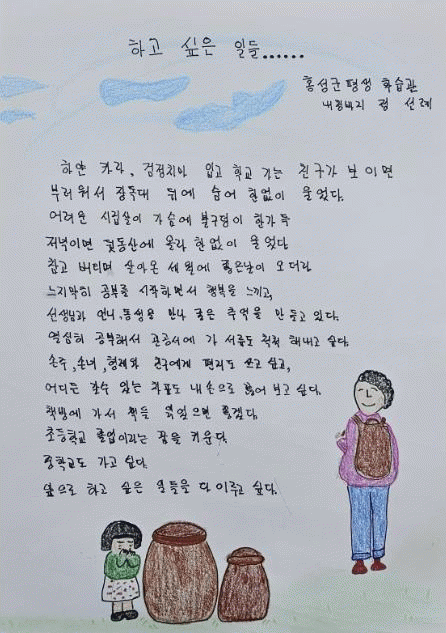 하고 싶은 일들......
홍성군 평생 학습관
선례
하얀 카라, 검정치마 입고 학교 가는 친구가 보이면
부러워서 장독대 뒤에 숨어 한없이 울었다.
어려운 시집살이 가슴에 불구덩이 한가득
저녁이면 뒷동산에 올라 한없이 울었다
참고 버티며 살아온 세월에 좋은날이 오더라
느지막히 공부를 시작하면서 행복을 느끼고,
선생님과 언니,동생을 만나 좋은 추억을 만들고 있다.
열심히 공부해서 관공서에 가 서류도 척척 해내고 싶다.
손주,손녀,형제와 친구에게 편지도 쓰고 싶고,
어디든 갈수 있는 차표도 내손으로 끊어 보고 싶다.
책방에 가서 책을 읽었으면 좋겠다.
초등학교 졸업이라는 꿈을 키운다.
중학교도 가고 싶다.
앞으로 하고 싶은 일들을 다 이루고 싶다.